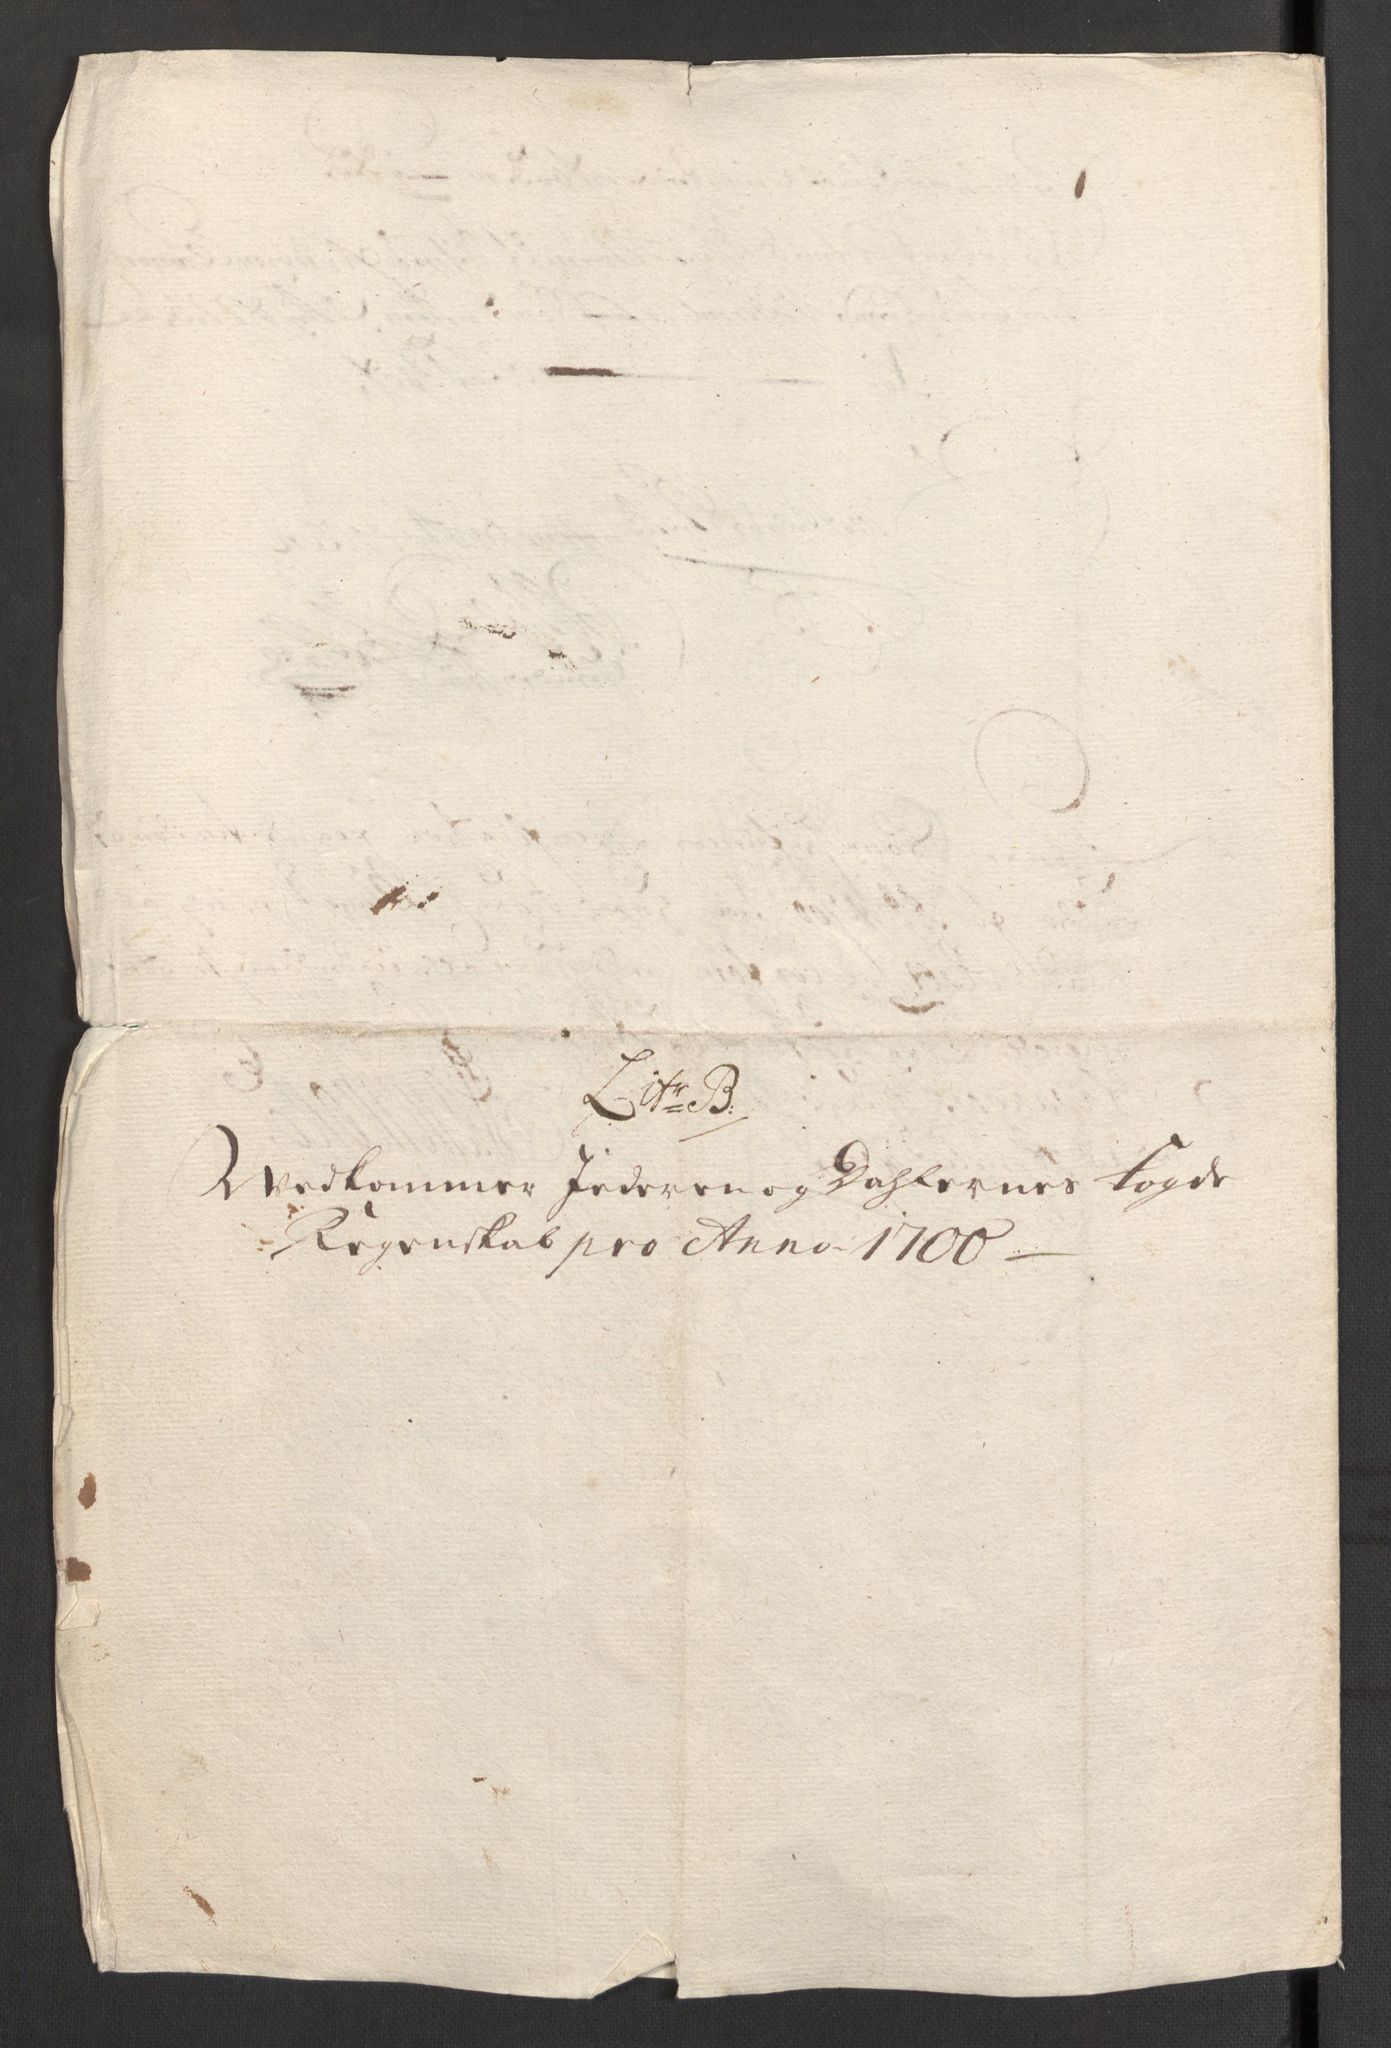 Litr B:
Vedkommer Jederen og Dahlernes fogde
Regenskab pro Anno 1700